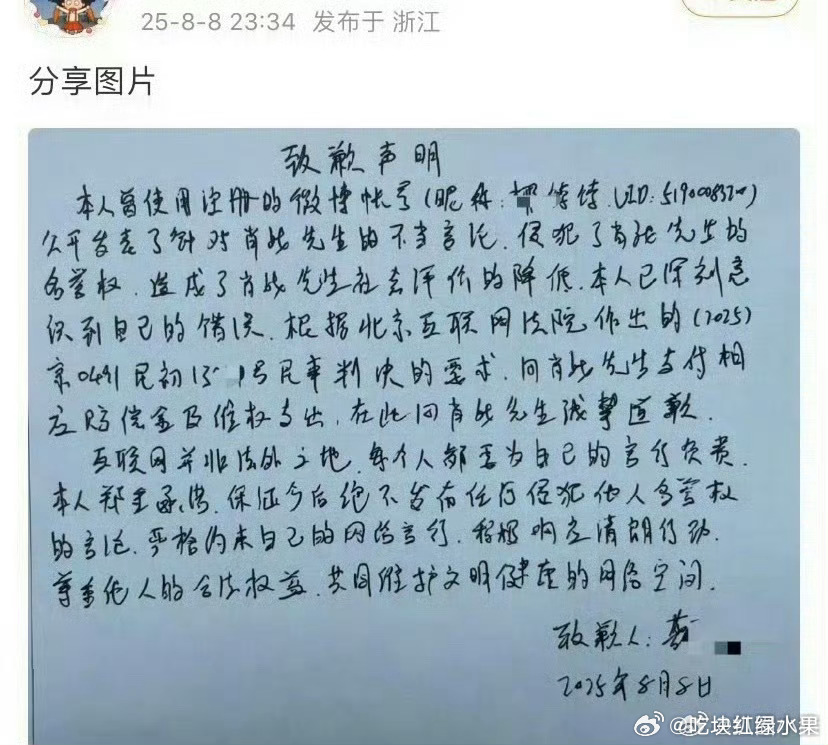 25-8-8 23:34 发布于 浙江
分享图片
致歉声明
本人曾使用注册的微博帐号(昵称: 饽饽.UID:51900083
公开发表了针对肖战先生的不当言论,侵犯了肖战先生的
名誉权,造成了肖战先生社会评价的降低.本人已深刻意
识到自己的错误.根据北京互联网法院作出的(2025)
京0491民初15 号民事判决的要求,向肖战先生支付相
应赔偿金及维权支出,在此向肖战先生诚挚道歉.
互联网并非法外之地,每个人都要为自己的言行负责.
本人郑重承诺,保证今后绝不发布任何侵犯他人名誉权
的言论,严格约束自己的网络言行,积极响应清朗行动.
尊重他人的合法权益,共同维护文明健康的网络空间.
致歉人:
2025年8月8日
@吃块红缨水果